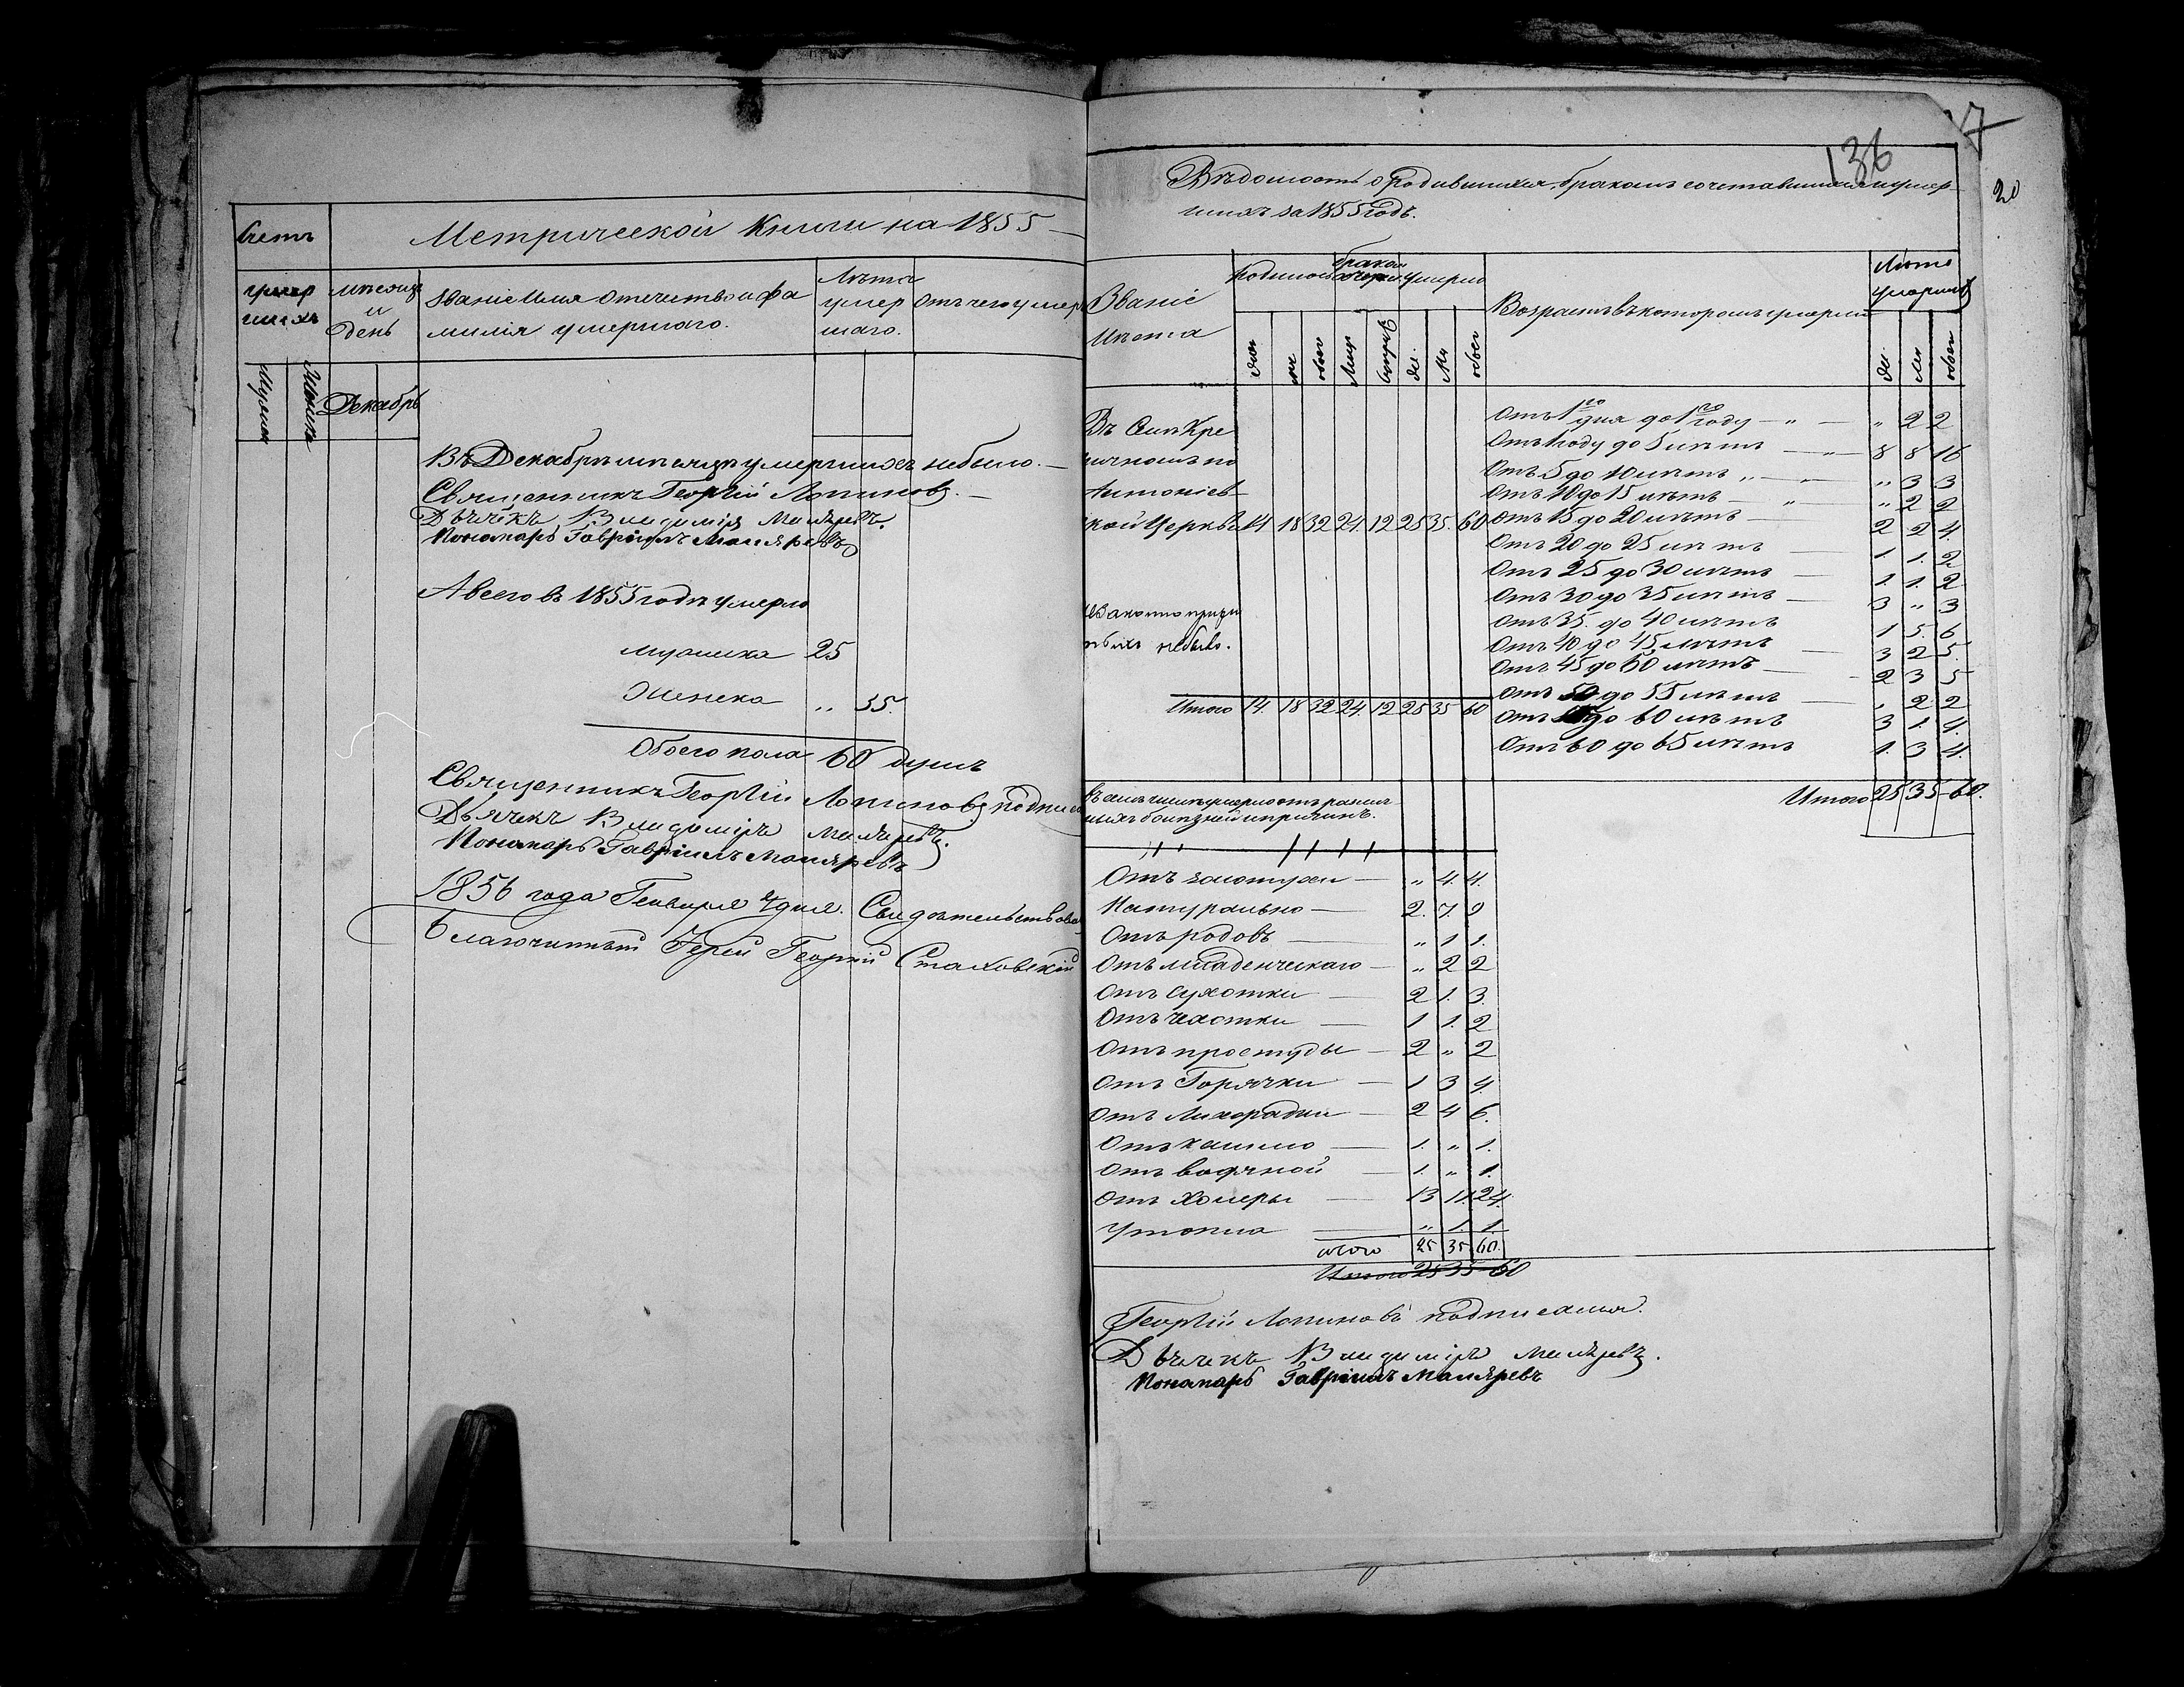 Счетъ
Метрической Книги на 1855
умер
шихъ
Мѣсяцъ
и
День
Званіе Имя Отечитво и фа
милія умершаго.
Лѣта
умер
шаго.
Отъ чего умер
Мужска
Женска
Декабрь
Въ Декабрѣ мѣсяцѣ умершихъ небыло.
Священникъ Георгій Лопиновъ.
Дьячекъ Владиміръ Маляревъ.
Пономарь Гавріилъ Маляревъ
А всего въ 1855 годѣ умерло
мужиска 25
Женска „ 35.
Обоего пола 60 душъ
Священникъ Георгій Лопиновъ подписа
Дьячекъ Владиміръ Маляревъ.
Пономарь Гавріилъ Маляревъ
1856 года Генваря дня. Свидѣтельствова
Благочинный Іерей Георгій Стаховскій
136
7
20
Вѣдомость о Родившихся, бракомъ сочетавшихся и умер
шихъ за 1855 годъ.
Званіе
Мѣста
Родилось
брако
умерло
Возрастъ въ которомъ умерли
Лѣто
умершихъ
обоего
Въ Селѣ Кре
Антоніев
ской Церкви 14 18 32 24. 12 25 35. 60
небыло.
Итого 14. 18 32 24. 12 25 35 60
Отъ 1го дня до 1го году — „ — „ 2 2
Отъ 1 году до 5 лѣтъ — 8 8 16
Отъ 5 до 10 лѣтъ „ — „ 3 3
Отъ 10 до 15 лѣтъ — „ „ 2 2
Отъ 15 до 20 лѣтъ — 2 2 4.
Отъ 20 до 25 лѣтъ — 1 1. 2
Отъ 25 до 30 лѣтъ — 1. 1. 2
Отъ 30 до 35 лѣтъ — 3 „ 3
Отъ 35. до 40 лѣтъ 1 5. 6
Отъ 40 до 45 лѣтъ — 3 2 5.
Отъ 45 до 50 лѣтъ — 2 3 5
Отъ 50 до 55 лѣтъ — „ 2 2
Отъ 55 до 60 лѣтъ 3 1. 4.
Отъ 60 до 65 лѣтъ 1. 3 4.
Итого 25 35 60.
въ семъ числѣ умерло отъ разли
ныхъ болѣзней и причинъ.
Отъ золотухи — „ 4. 4.
Натурально — 2. 7. 9
Отъ родовъ — „ 1 1.
Отъ младенческаго — „ 2 2
Отъ Сухотки — 2 1. 3.
Отъ чахотки — 1 1. 2
Отъ простуды — 2 „ 2
Отъ Горячки — 1 3 4.
Отъ Лихорадки — 2 4 6.
Отъ кашлю — 1. „ 1.
Отъ водяной — 1. „ 1.
Отъ Холеры — 13 11. 24.
Утопла — „ 1. 1
итого 25 35 60.
Итого 25 35 60
Георгій Лопиновъ подписался.
Дьячекъ Владиміръ Маляревъ.
Пономарь Гавріилъ Маляревъ